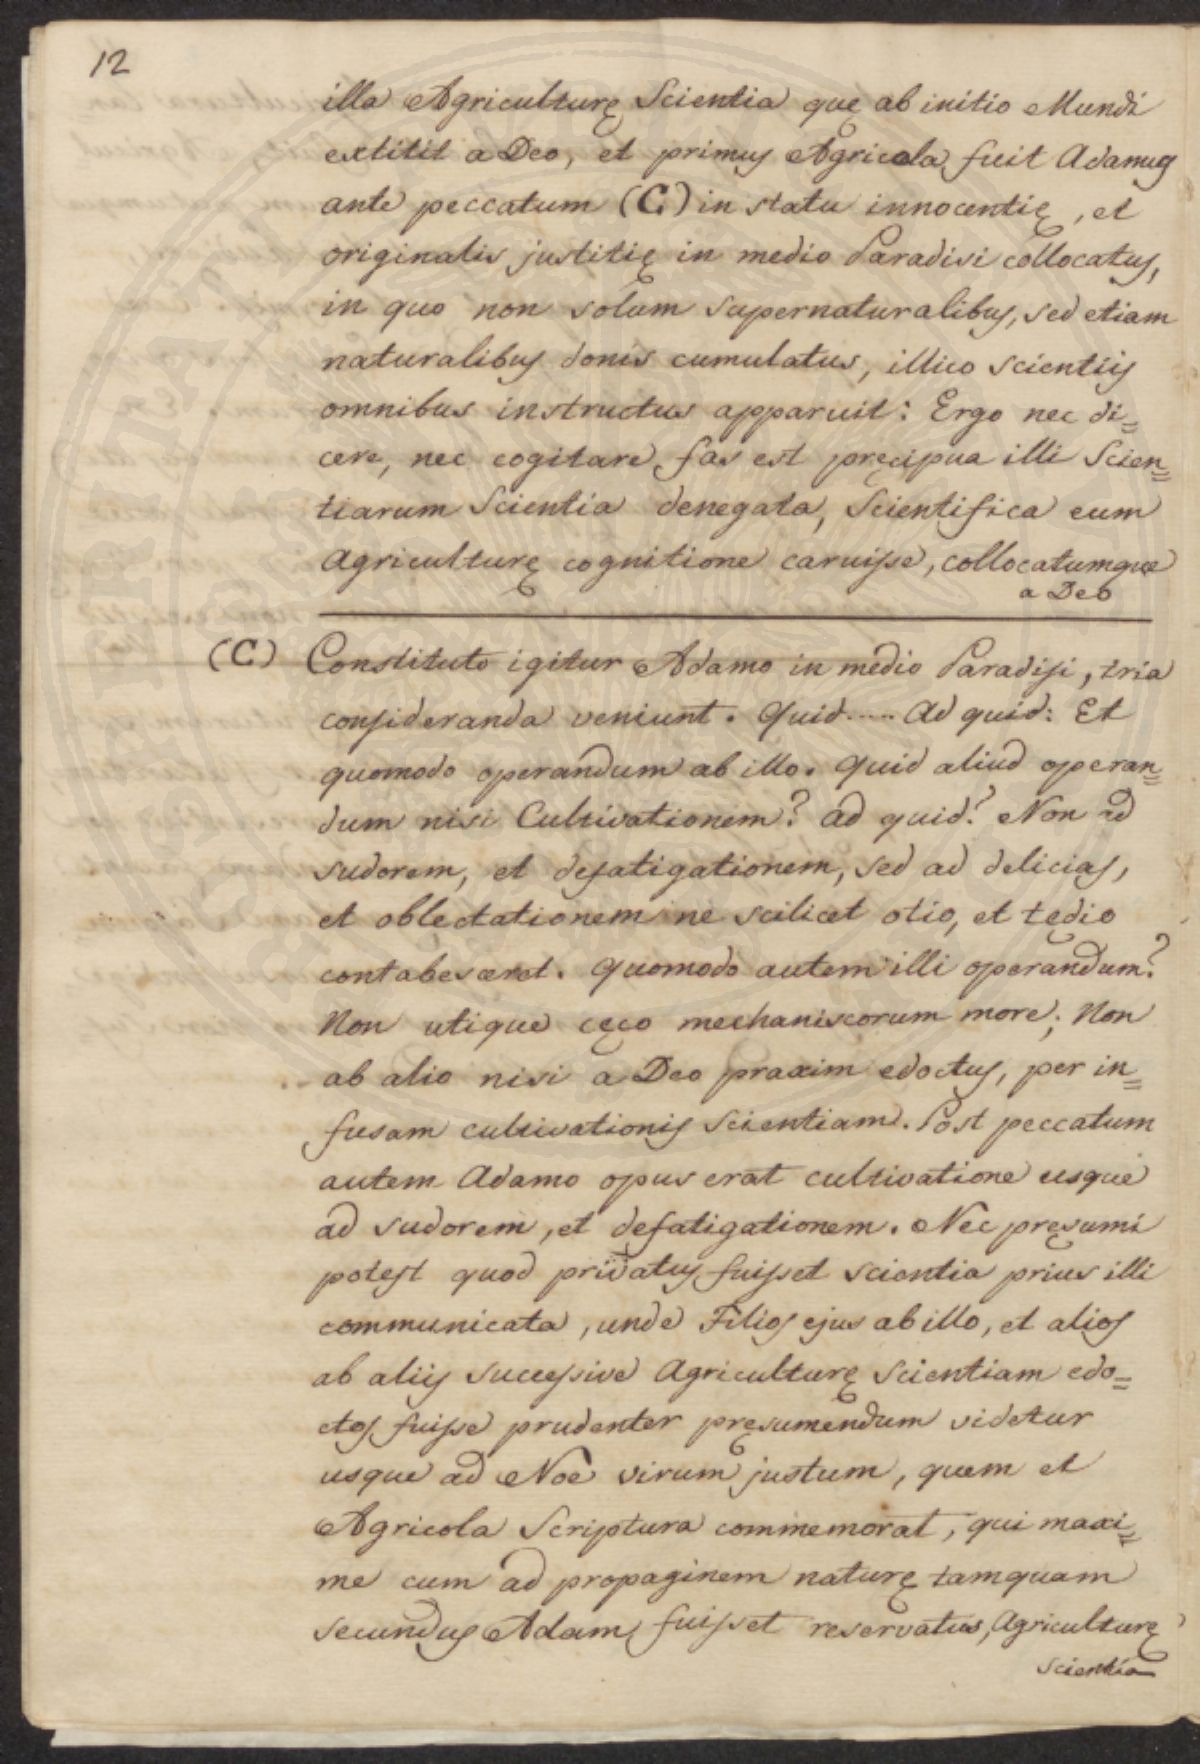 12
illa Agriculturę Scientia quę ab initio Mundi
extitit a Deo, et primus Agricola fuit Adamus
ante peccatum (C) in statu innocentię, et
originalis justitię in medio Paradisi collocatus,
in quo non solum supernaturalibus, sed etiam
naturalibus donis cumulatus, illico scientiis
omnibus instructus apparuit: Ergo nec di=
cere, nec cogitare fas est pręcipua illi Scien=
tiarum Scientia denegata, Scientifica eum
Agriculturę cognitione caruisse, collocatumque
a Deo
(C) Constituto igitur Adamo in medio Paradisi, tria
consideranda veniunt. Quid..... Ad quid: Et
quomodo operandum ab illo. Quid aliud operan=
dum nisi Cultivationem? ad quid? Non ad
sudorem, et defatigationem, sed ad delicias,
et oblectationem ne scilicet otio, et tędio
contabesceret. Quomodo autem illi operandum?
Non utique cęco mechaniscorum more; Non
ab alio nisi a Deo praxim edoctus, per in=
fusam cultivationis scientiam. Post peccatum
autem Adamo opus erat cultivatione usque
ad sudorem, et defatigationem. Nec pręsumi
potest quod privatus fuisset scientia prius illi
communicata, unde Filios ejus ab illo, et alios
ab aliis successive Agriculturę Scientiam edo=
ctos fuisse prudenter pręsumendum videtur
usque ad Noè virum justum, quem et
Agricola Scriptura commemorat, qui maxi=
me cum ad propaginem naturę tamquam
secundus Adam fuisset reservatus, Agriculturę
scientia